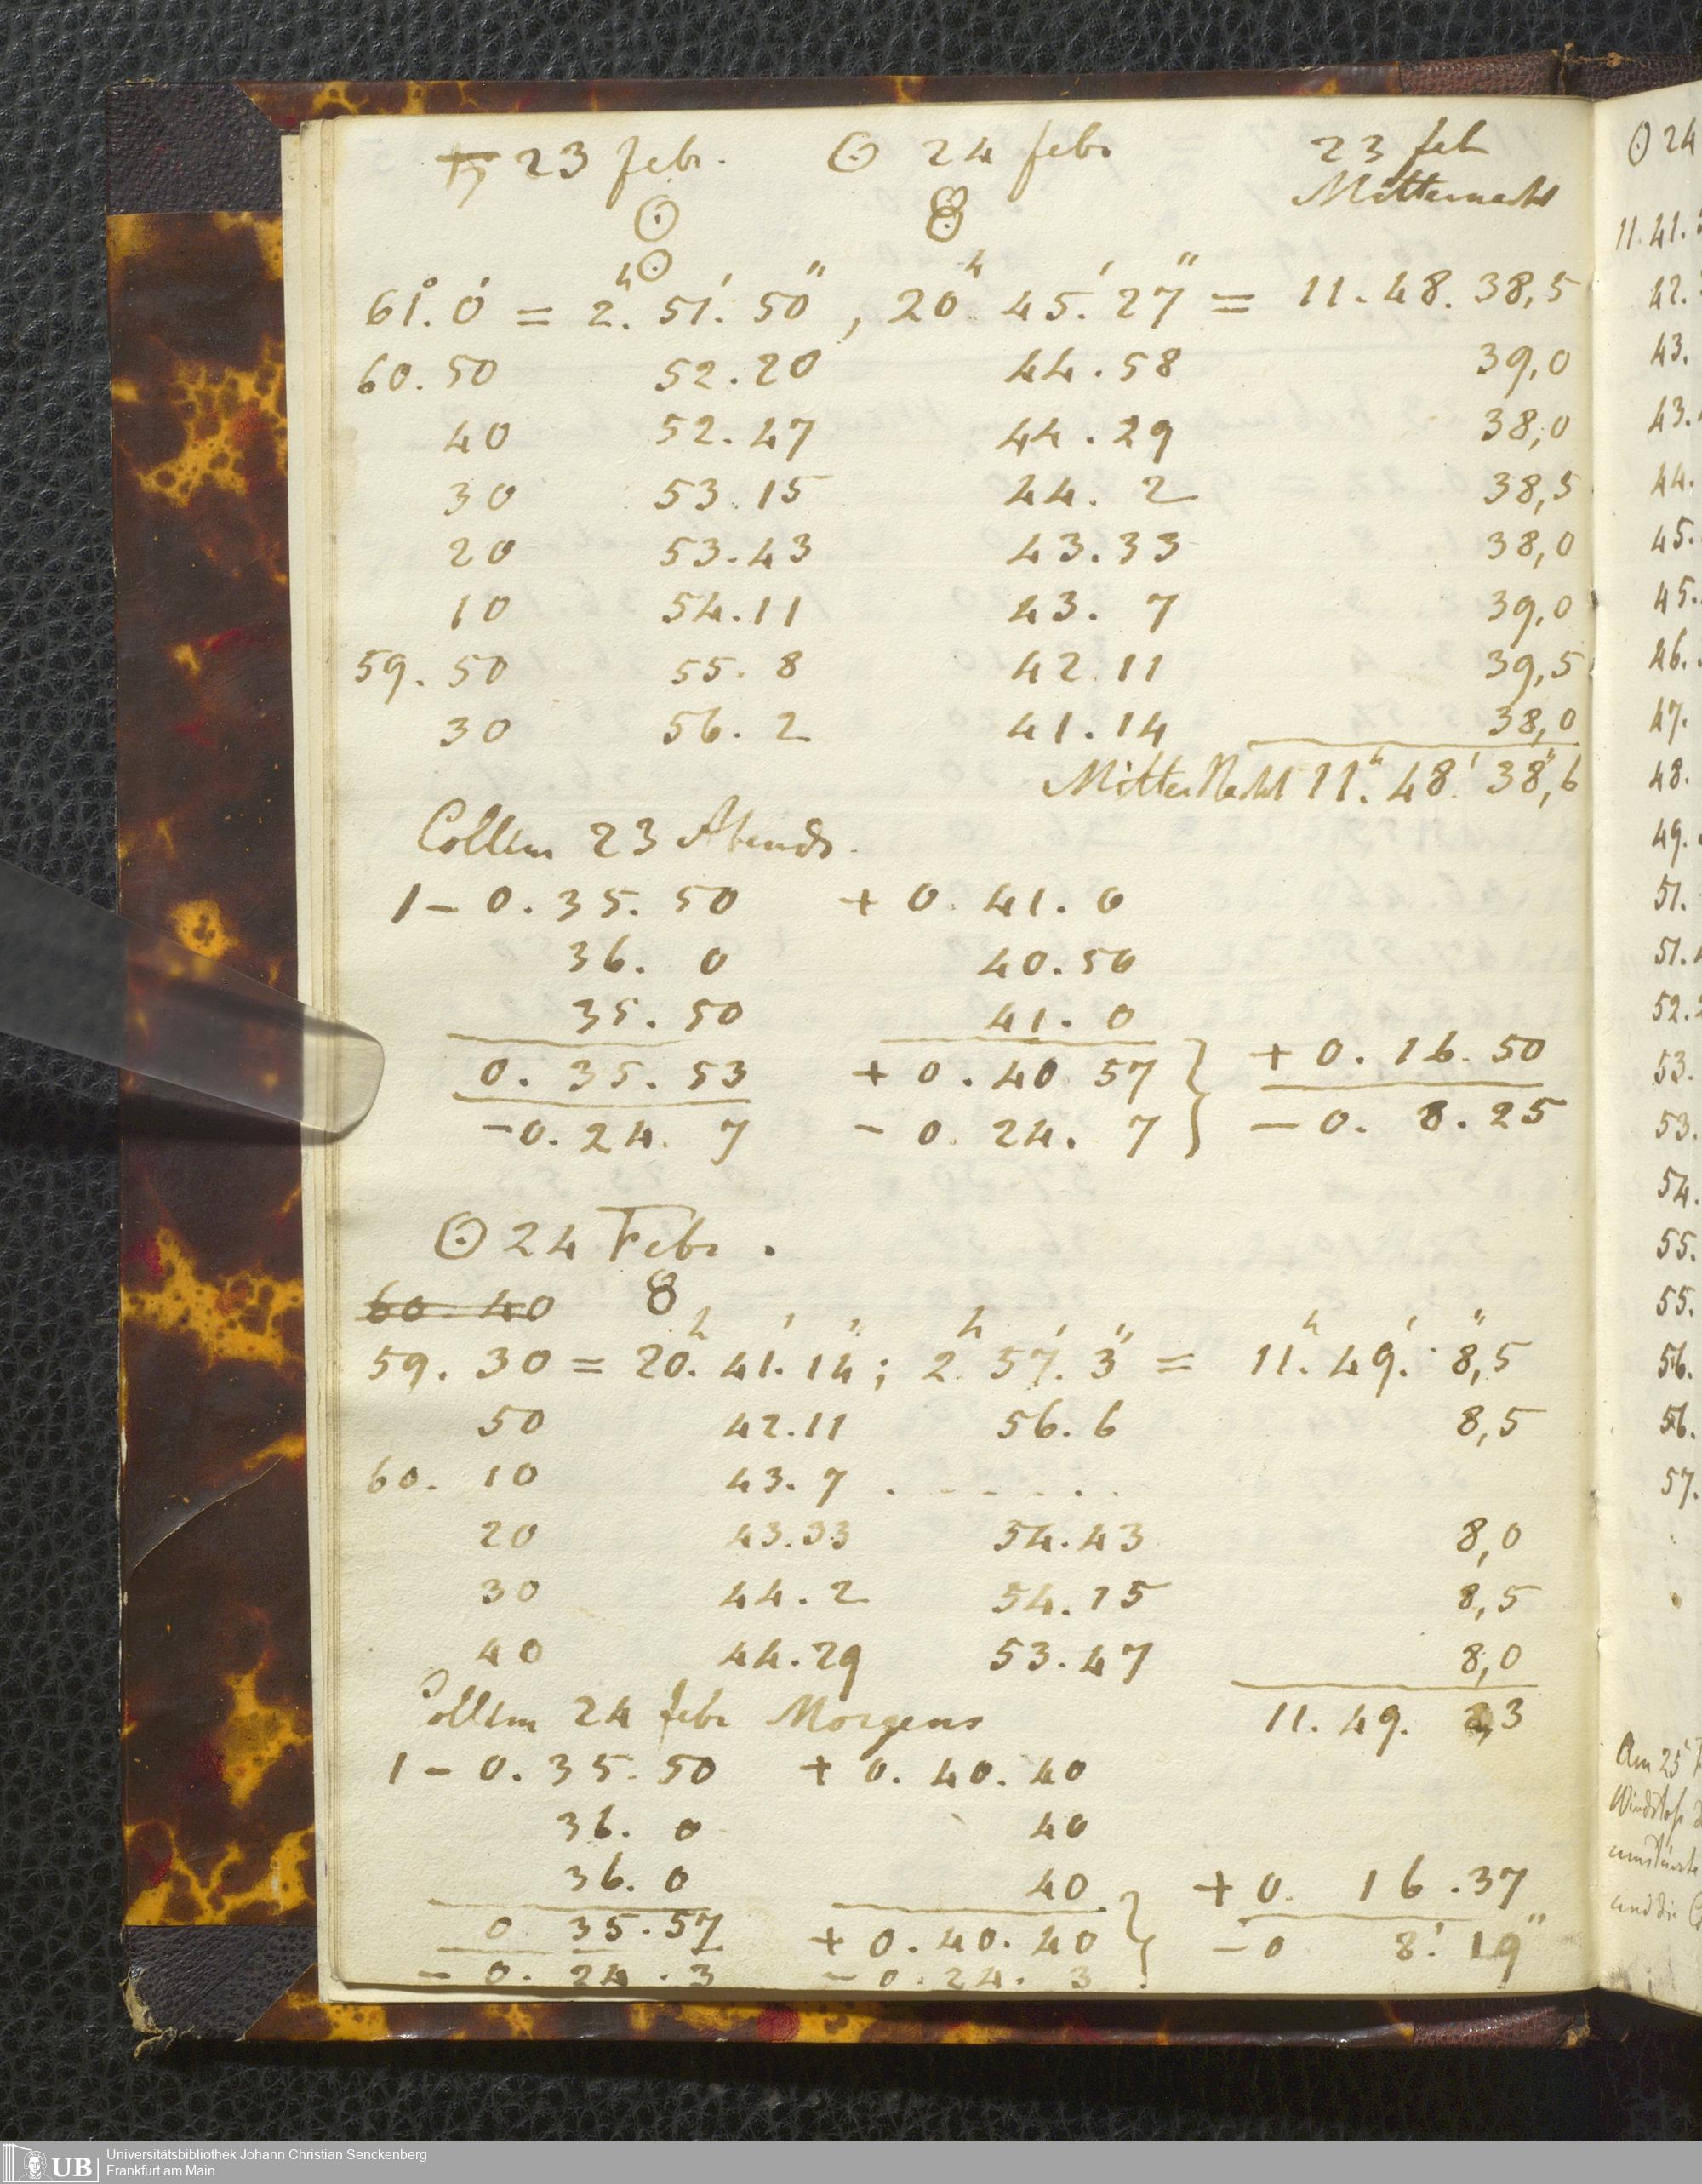 ♄ 23 febr. ☉ 24 febr 23 feb
Mitternacht
61°. 0' = 2.h 51.' 50'' , 20.h 45.' 27'' = 11. 48. 38,5
60. 50 52. 20 44. 58 39,0
40 52. 47 44. 29 38,0
30 53. 15 44. 2 38,5
20 53. 43 43. 33 38,0
10 54. 11 43. 7 39,0
59. 50 55. 8 42. 11 39,5
30 56. 2 41. 14 38,0
MitterNacht 11.h 48.' 38'',6
Collim 23 Abends.
1 - 0. 35. 50 + 0. 41. 0
36. 0 40. 50
35. 50 41. 0
0. 35. 53 + 0. 40 57 } + 0. 16. 50
- 0. 24. 7 - 0. 24. 7 } - 0. 8. 25
☉ 24 Febr.
60. 40
59. 30 = 20.h 41.' 14''; 2.h 57.' 3'' = 11.h 49.' 8,''5
50 42. 11 56. 6 8,5
60. 10 43. 7 . . . . . .
20 43. 33 54. 43 8,0
30 44. 2 54. 15 8,5
40 44. 29 53. 47 8,0
Collim 24 febr Morgens 11. 49. 8,3
1 - 0. 35. 50 + 0. 40. 40
36. 0 40
36. 0 40
0. 35. 57 + 0. 40. 40 } + 0. 16. 37
- 0. 24. 3 - 0. 24. 3 } - 0 8.' 19''
☉ 24
11. 41.
42.
43.
43.
44.
45.
45.
46.
47.
48.
49.
51.
51.
52.
53.
53.
54.
55.
55.
56.
56.
57.
Am 25
und die
UB Universitätsbibliothek Johann Christian Senckenberg
Frankfurt am Main